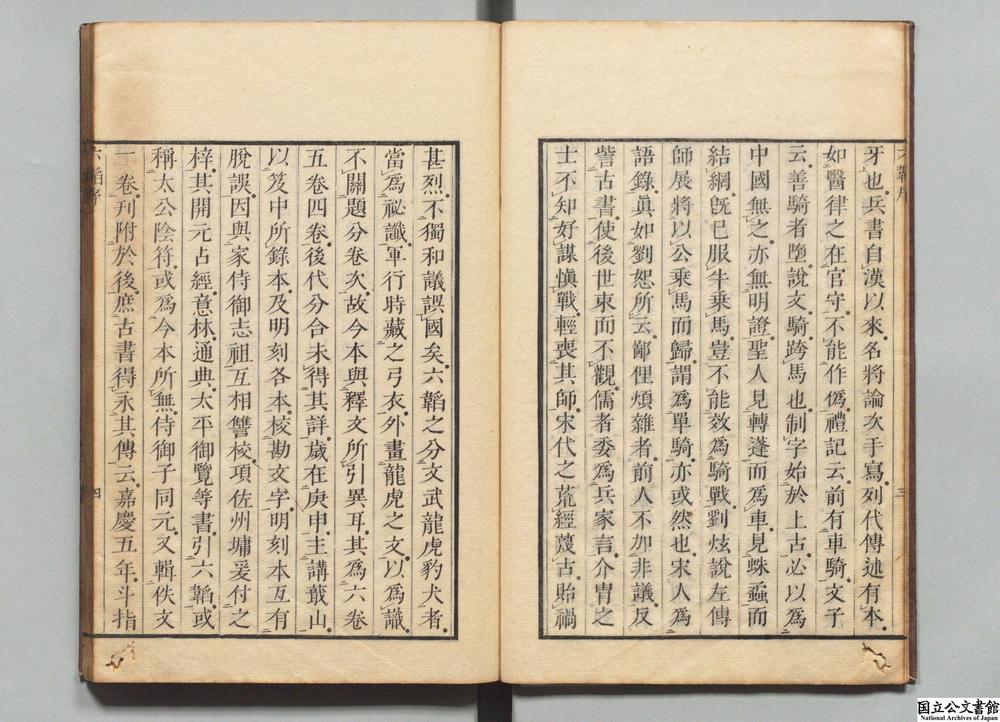 牙也兵書自漢以來名將論次手寫列代傳述有本
如醫律之在官守不能作偽禮記云前有車騎文子
云善騎者墮說文騎跨馬也制字始於上古必以爲
中國無之亦無明證聖人見轉蓬而爲車見蛛蝥而
結網旣已服牛乘馬豈不能效爲騎戰劉炫說左傳
師展將以公乘馬而歸謂爲單騎亦或然也宋人爲
語錄眞如劉恕所云鄙俚煩雜者前人不加非議反
訾古書使後世束而不觀儒者委爲兵家言介胄之
士不知好謀愼戰輕喪其師宋代之荒經蔑古貽禍
甚烈不獨和議誤國矣六韜之分文武龍虎豹犬者
當爲祕讖軍行時藏之弓衣外畫龍虎之文以爲識
不關題分卷次故今本與釋文所引異耳其爲六卷
五卷四卷後代分合未得其詳歲在庚申主講蕺山
以笈中所錄本及明刻各本校勘文字明刻本互有
脫誤因與家侍御志祖互相讐校項佐州墉爰付之
梓其開元占經意林通典太平御覽等書引六韜或
稱太公陰符或爲今本所無侍御子同元又輯佚文
一卷刊附於後庶古書得永其傳云嘉慶五年斗指
六韜序
三
六韜序
四
国立公文書館
National Archives of Japan